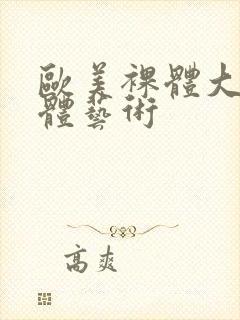 歐美裸體大
體藝術
高爽